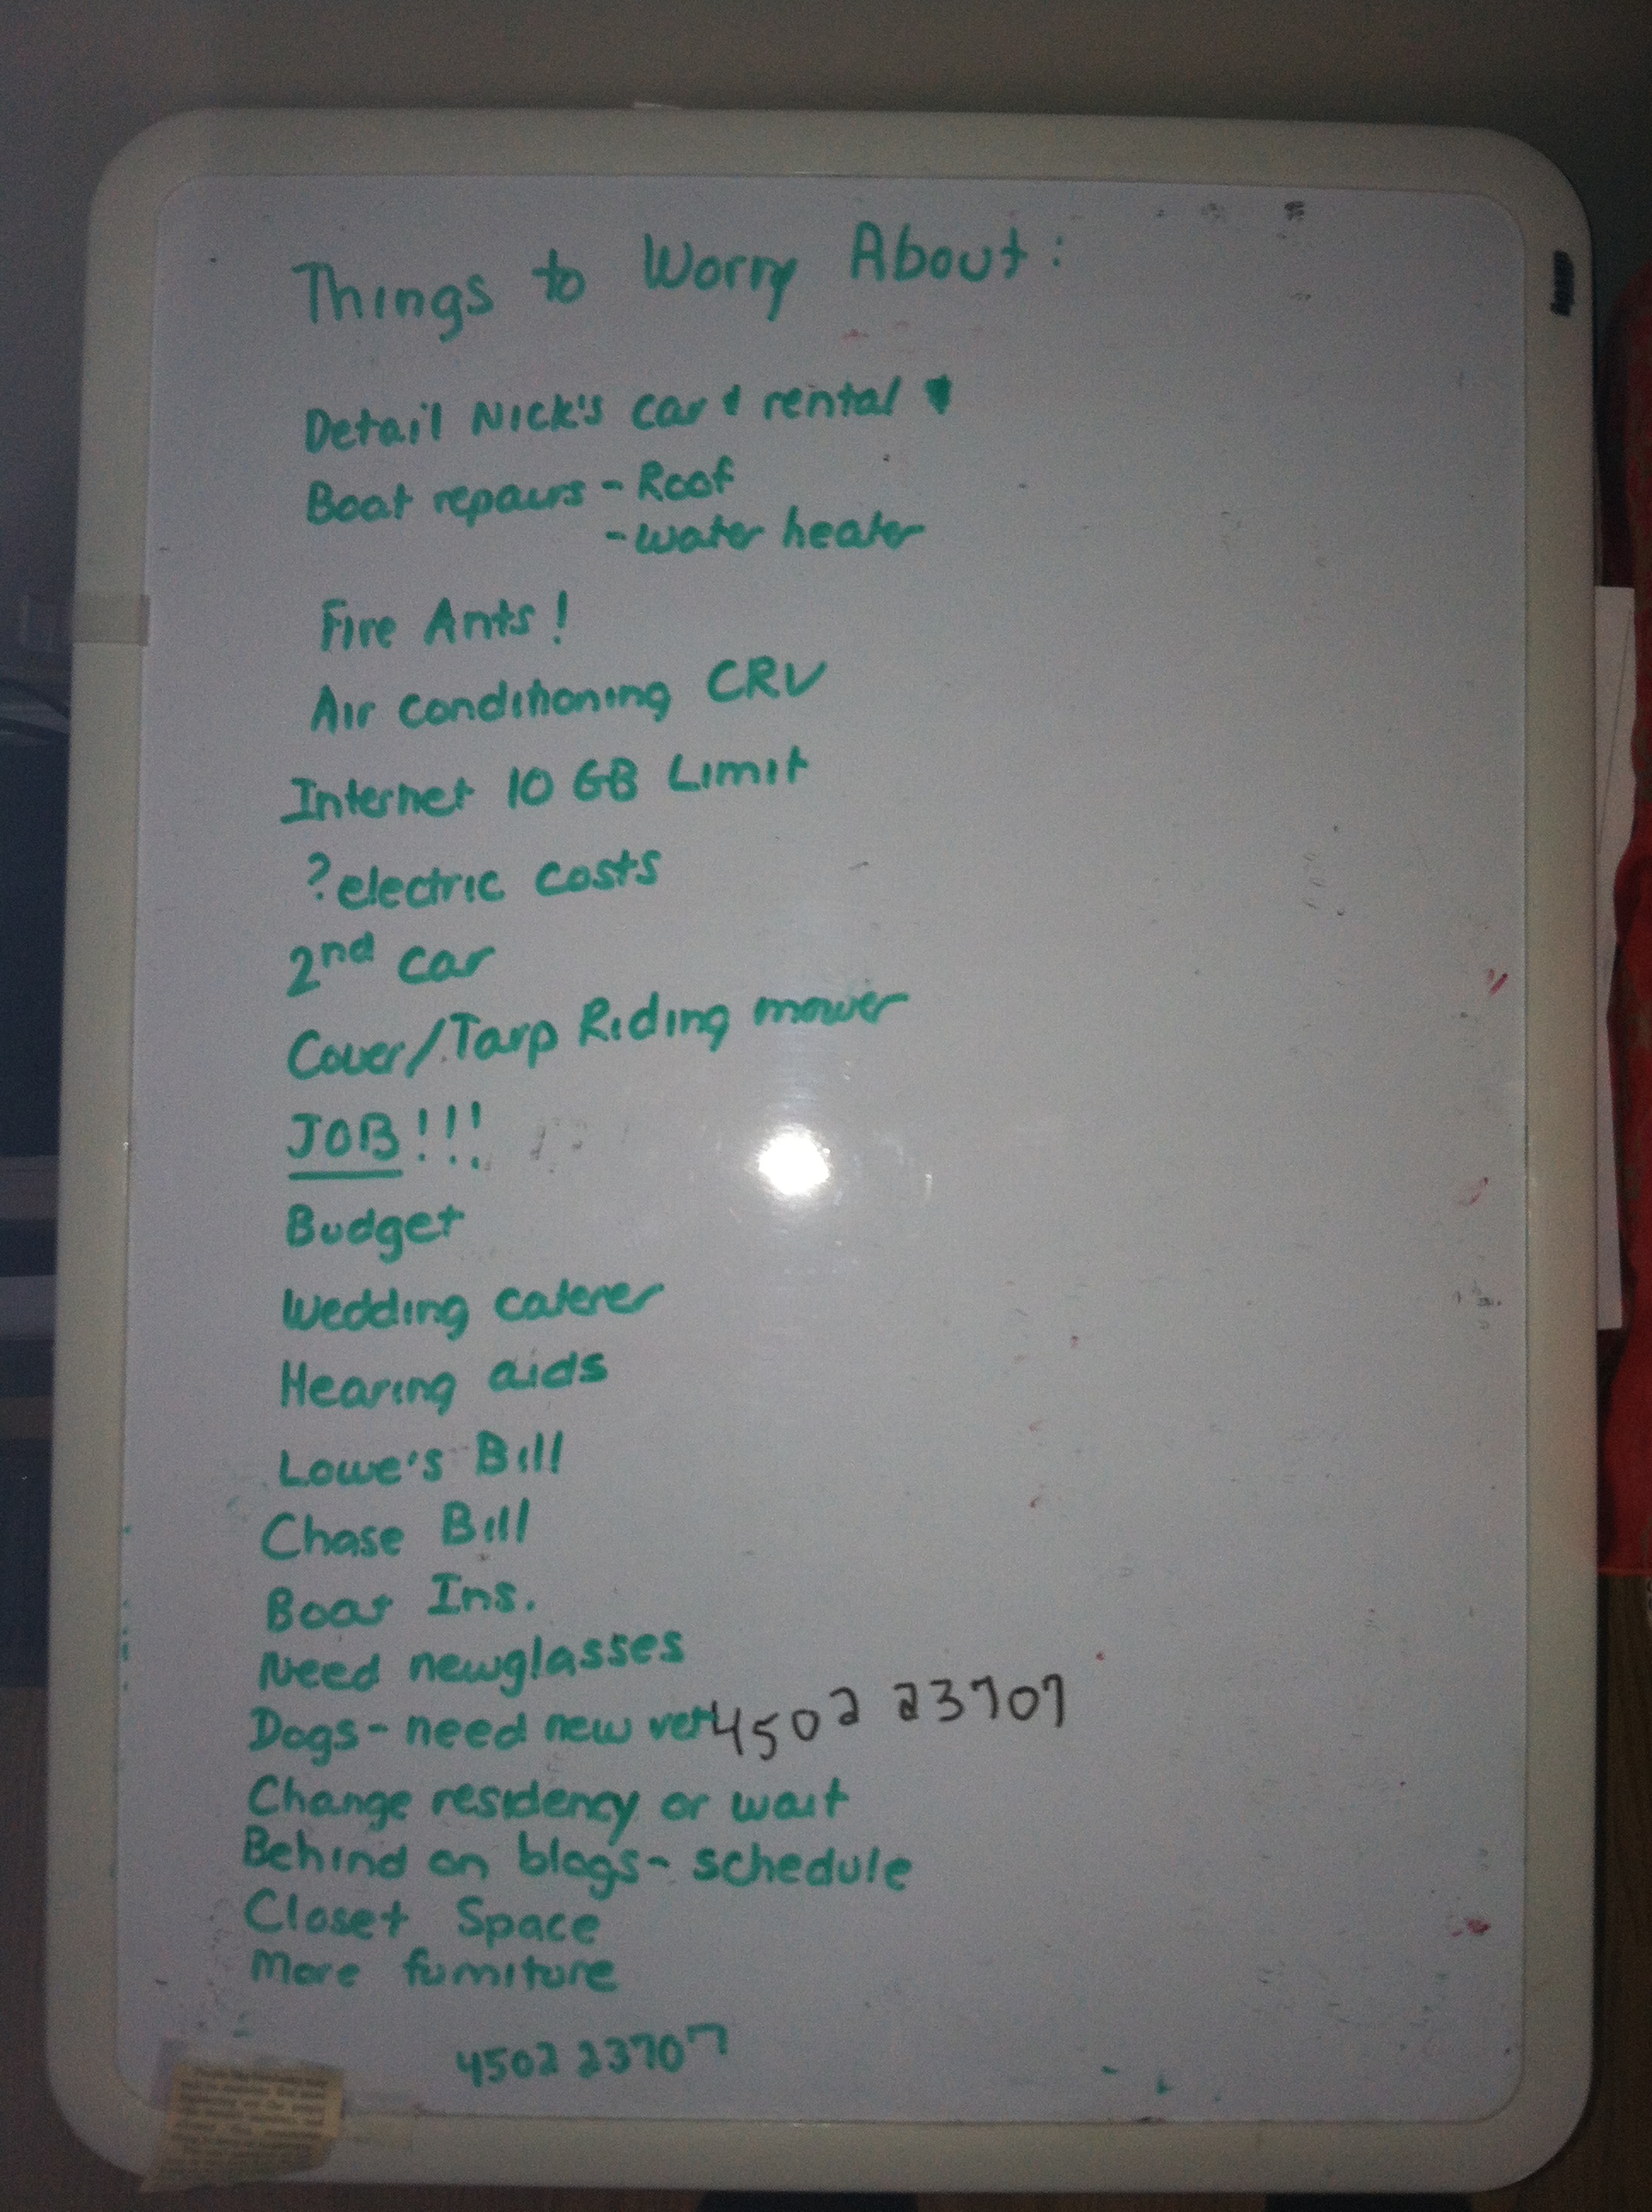 Things to Worry About:
Detail Nick's car & rental
Boat repairs - Roof
- water heater
Fire Ants!
Air conditioning CRV
Internet 10 GB Limit
? electric costs
2nd car
Cover/Tarp Riding mower
JOB!!!
Budget
Wedding caterer
Hearing aids
Lowe's Bill
Chase Bill
Boat Ins.
Need new glasses
Dogs - need new vet 4502 23707
Change residency or wait
Behind on blogs - schedule
Closet Space
More furniture
4502 23707